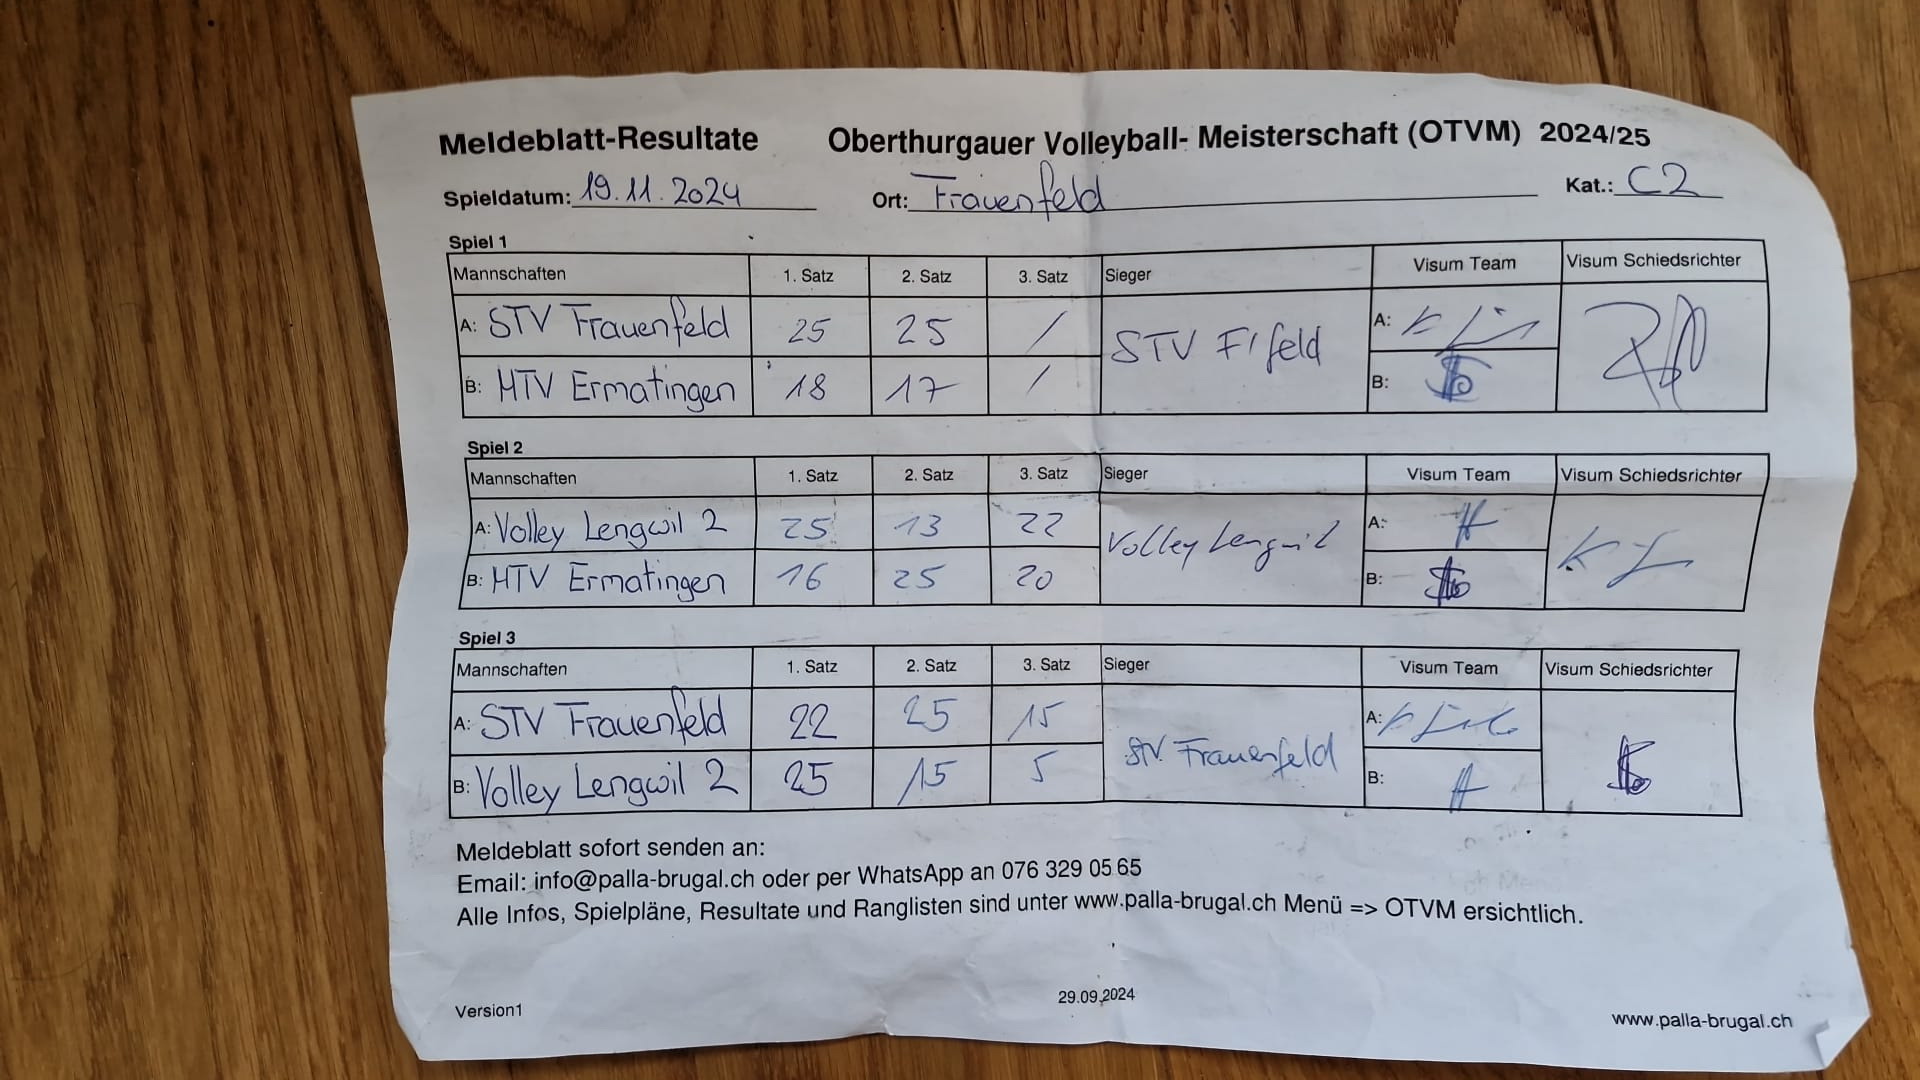 Meldeblatt-Resultate Oberthurgauer Volleyball- Meisterschaft (OTVM) 2024/25
Spieldatum: 19.11.2024 Ort: Frauenfeld Kat.: C2
Spiel 1
Mannschaften 1. Satz 2. Satz 3. Satz Sieger Visum Team Visum Schiedsrichter
A: STV Frauenfeld 25 25 / STV F'feld A:
B: MTV Ermatingen 18 17 / B:
Spiel 2
Mannschaften 1. Satz 2. Satz 3. Satz Sieger Visum Team Visum Schiedsrichter
A: Volley Lengwil 2 25 13 22 Volley Lengwil 2 A:
B: MTV Ermatingen 16 25 20 B:
Spiel 3
Mannschaften 1. Satz 2. Satz 3. Satz Sieger Visum Team Visum Schiedsrichter
A: STV Frauenfeld 22 25 15 STV Frauenfeld A:
B: Volley Lengwil 2 25 15 5 B:
Meldeblatt sofort senden an:
Email: info@palla-brugal.ch oder per WhatsApp an 076 329 05 65
Alle Infos, Spielpläne, Resultate und Ranglisten sind unter www.palla-brugal.ch Menü => OTVM ersichtlich.
Version1 29.09.2024 www.palla-brugal.ch